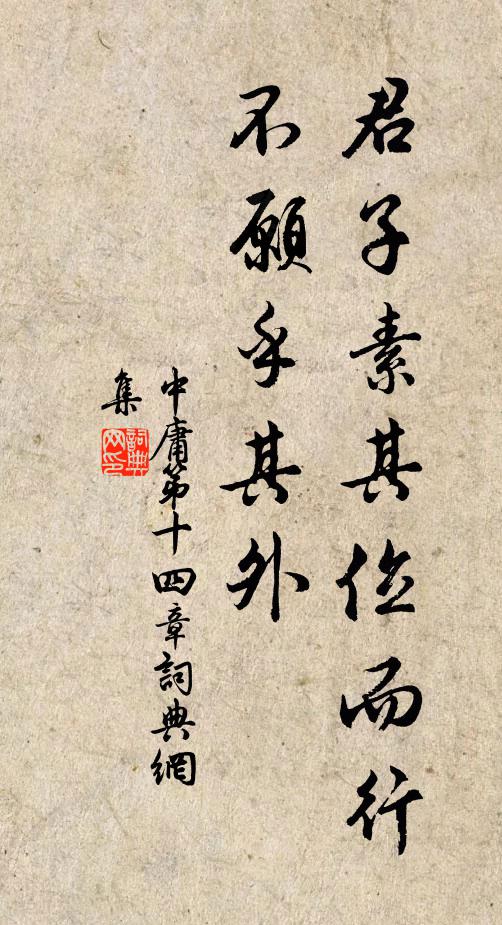 君子素其位而行
不願乎其外
中庸第十四章詞典網
集
詞典
网印